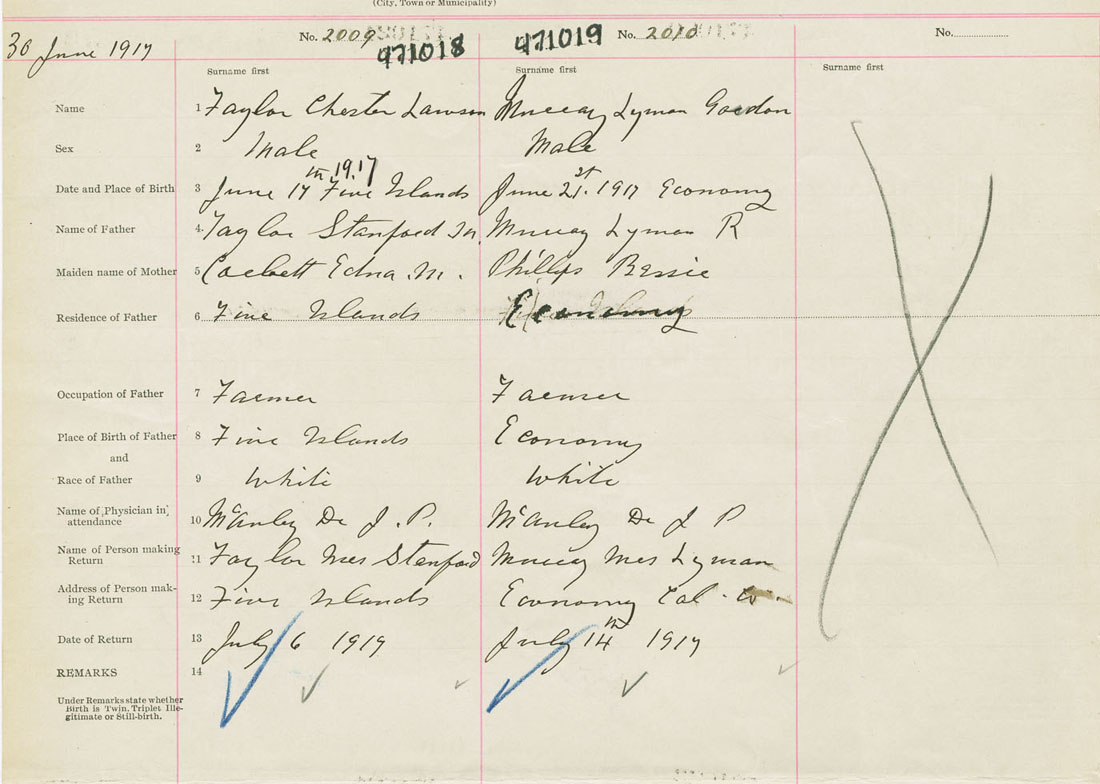 (City, Town or Municipality)
30 June 1917
No. 2009
471018
471019
No. 2010
No.
Surname first
Surname first
Surname first
Name 1 Taylor Chester Lawson Murray Lyman Gordon
Sex 2 Male Male
Date and Place of Birth 3 June 17th 1917 Five Islands June 21st. 1917 Economy
Name of Father 4. Taylor Stanford Murray Lyman R
Maiden name of Mother 5 Corbett Edna M. Phillips Bessie
Residence of Father 6 Five Islands Economy
Occupation of Father 7 Farmer Farmer
Place of Birth of Father 8 Five Islands Economy
and
Race of Father 9 White White
Name of Physician in
attendance 10 McAnley Dr J. P. McAnley Dr J P
Name of Person making
Return 11 Taylor Mrs Stanford Murray Mrs Lyman
Address of Person mak-
ing Return 12 Five Islands Economy Col.
Date of Return 13 July 6 1917 July 14th 1917
REMARKS 14
Under Remarks state whether
Birth is Twin, Triplet Ille-
gitimate or Still-birth.